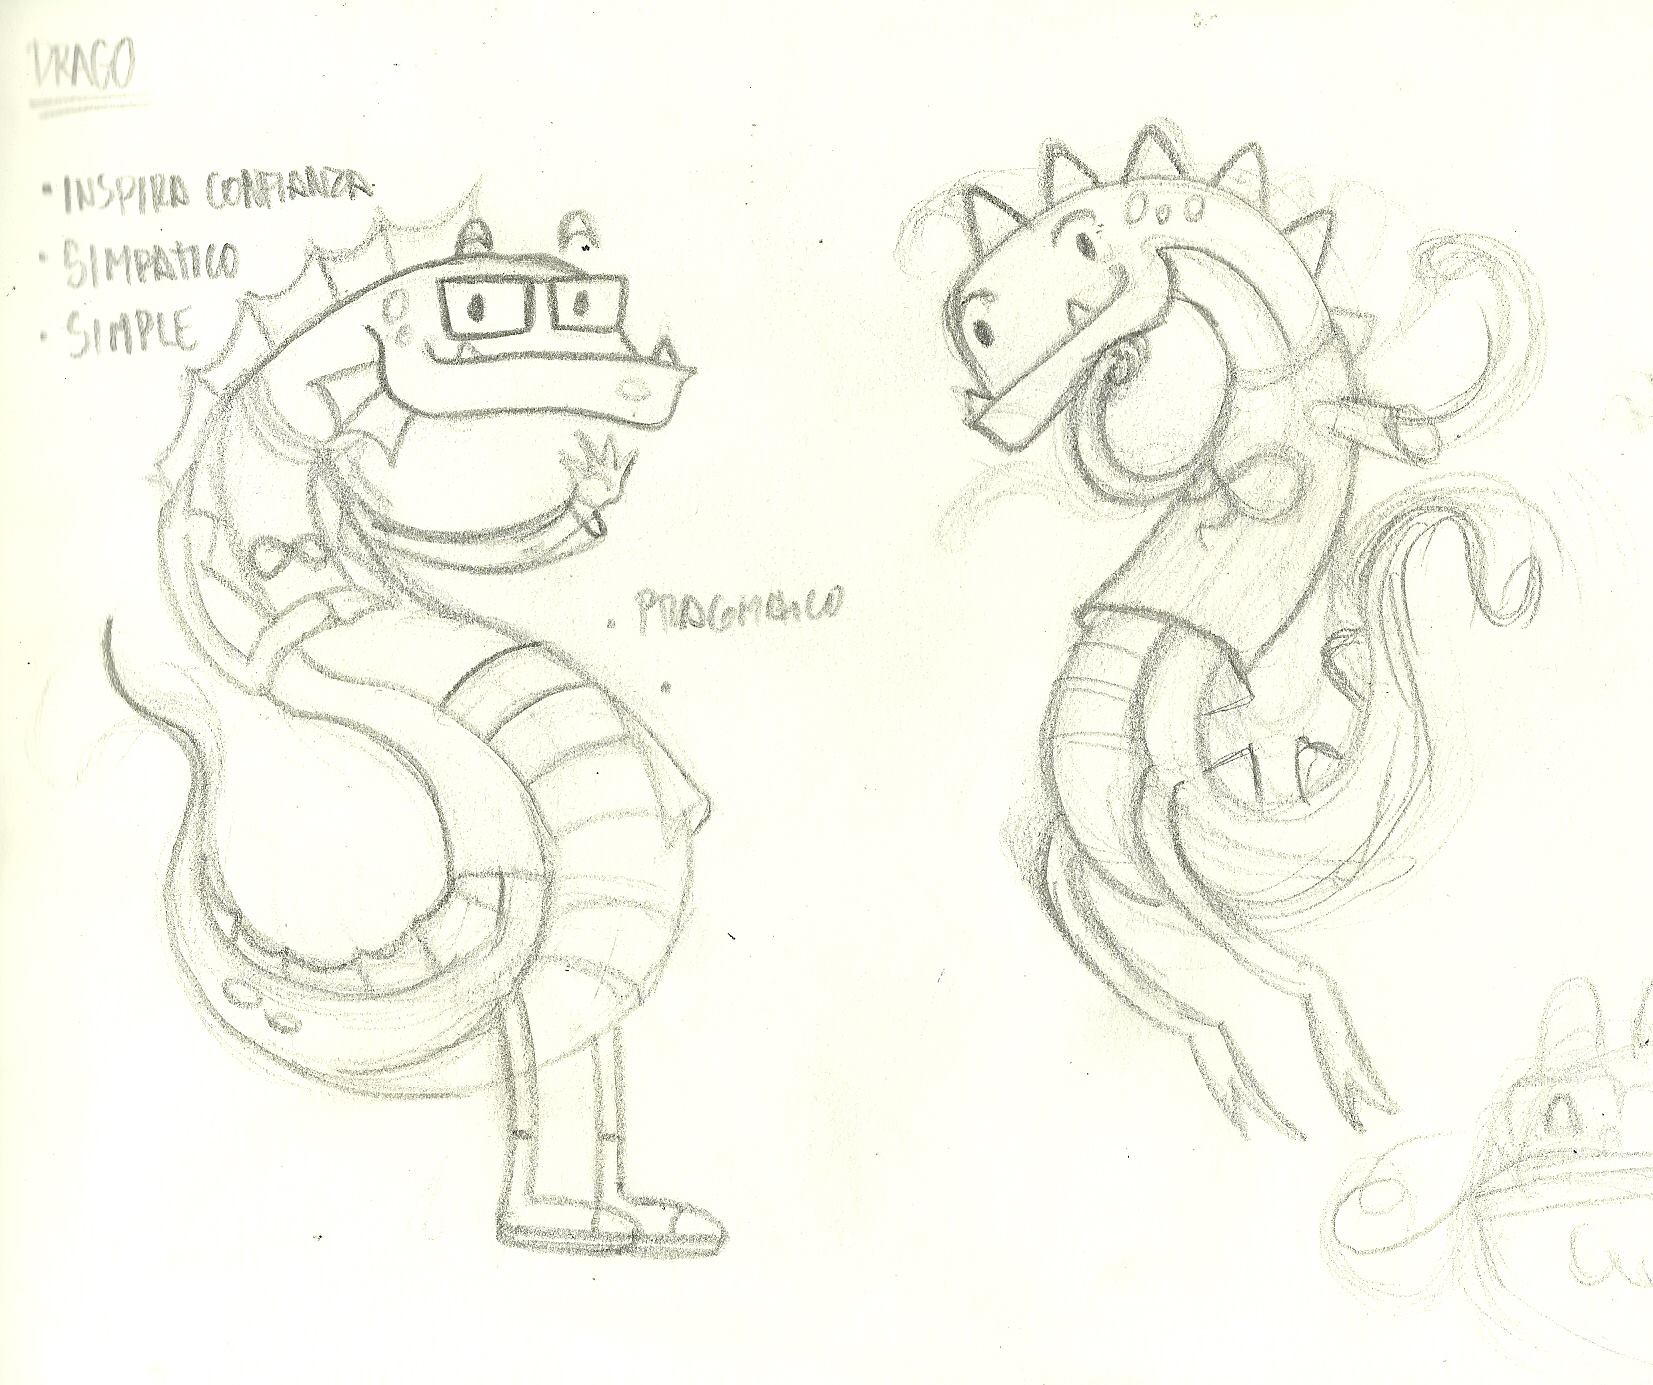 DRAGO
• INSPIRA CONFIANZA
• SIMPATICO
• SIMPLE
• PRAGMATICO
•